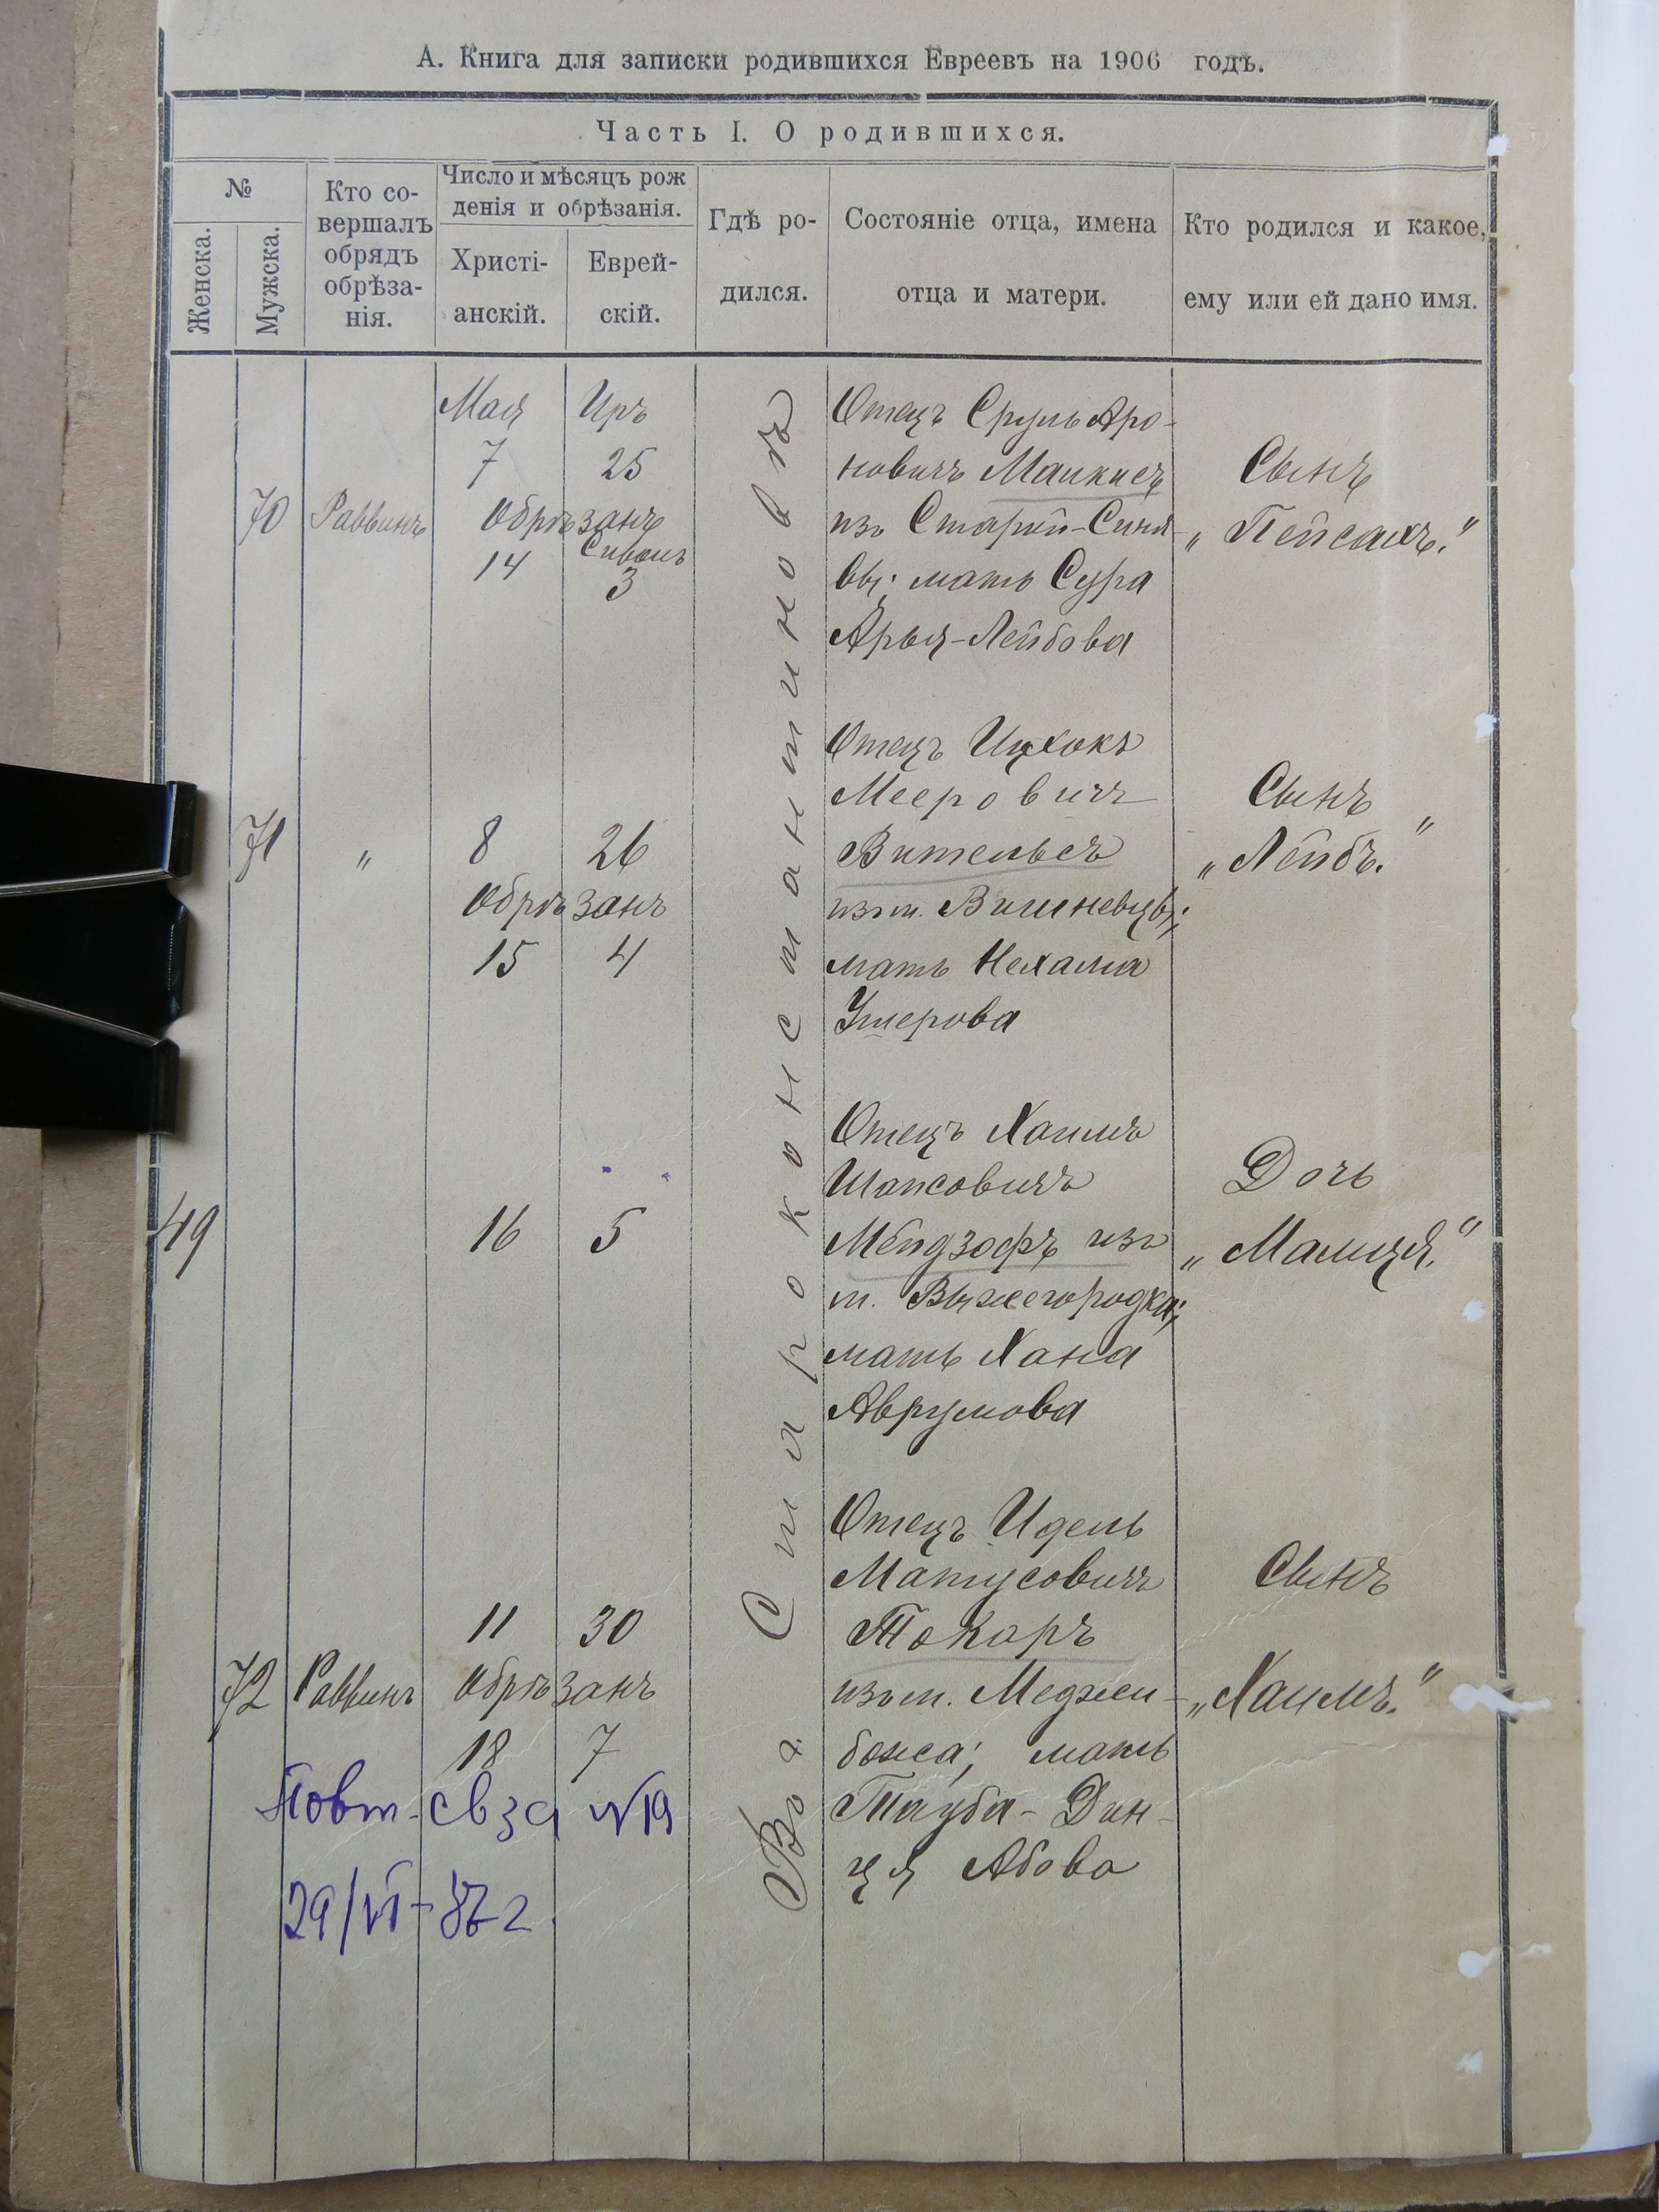 А. Книга для записки родившихся Евреевъ на 1906 годъ.
Часть I. О родившихся.
№
Женска.
Мужска.
Кто со-
вершалъ
обрядъ
обрѣза-
нія.
Число и мѣсяцъ рож
денія и обрѣзанія.
Христі-
анскій.
Еврей-
скій.
Гдѣ ро-
дился.
Состояніе отца, имена
отца и матери.
Кто родился и какое,
ему или ей дано имя.
Въ г. Староконстантиновѣ
Мая Иръ
7 25
70 Раввинъ Обрѣзанъ
Сиванъ
14 3
Отецъ Сруль Аро-
новичъ Манкисъ
изъ Старой-Синя-
вы; мать Сура
Арья-Лейбова
Сынъ
„Пейсахъ.“
71 „ 8 26
Обрѣзанъ
15 4
Отецъ Ицхокъ
Мееровичъ
Вительсъ
изъ м. Вишневцы;
мать Нехама
Ушерова
Сынъ
„Лейбъ.“
49 16 5
Отецъ Хаимъ
Шапсовичъ
Мейдзофъ изъ
м. Выжегородка;
мать Хана
Аврумова
Дочь
„Малця.“
11 30
72 Раввинъ Обрѣзанъ
18 7
Отецъ Идель
Матусовичъ
Токаръ
изъ м. Меджи-
божа; мать
Тауба-Дин-
ця Абова
Сынъ
„Хаимъ.“
Повт. св за №19
29/VI-